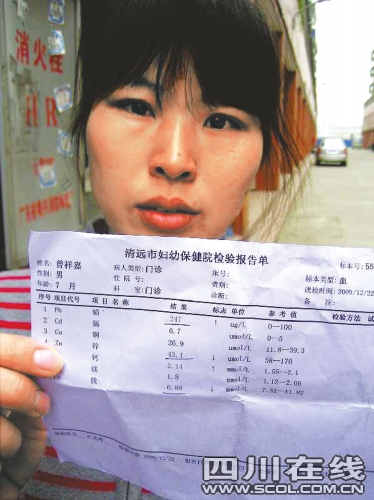 消火栓
HR
清远市妇幼保健院检验报告单
姓名:曾祥嘉 病人类型:门诊 床号: 标本号:55
性别:男 住院号: 费别: 标本类型:血
年龄:7 月 科 室:门诊 诊断: 送检时间:2009/12/22
备注:
序号 项目代号 项目名称 结果 标志 单位 参考值 检验方法
1 Pb 铅 247 ↑ ug/L 0--100
2 Cd 镉 0.7 umol/L 0--5
3 Cu 铜 26.9 umol/L 11.8--39.3
Zn 锌 43.1 ↓ umol/L 58--170
钙 2.14 mmol/L 1.55--2.1
镁 1.5 mmol/L 1.12--2.06
铁 6.88 ↓ mmol/L 7.52--11.82
2009/12/22
四川在线
WWW.SCOL.COM.CN